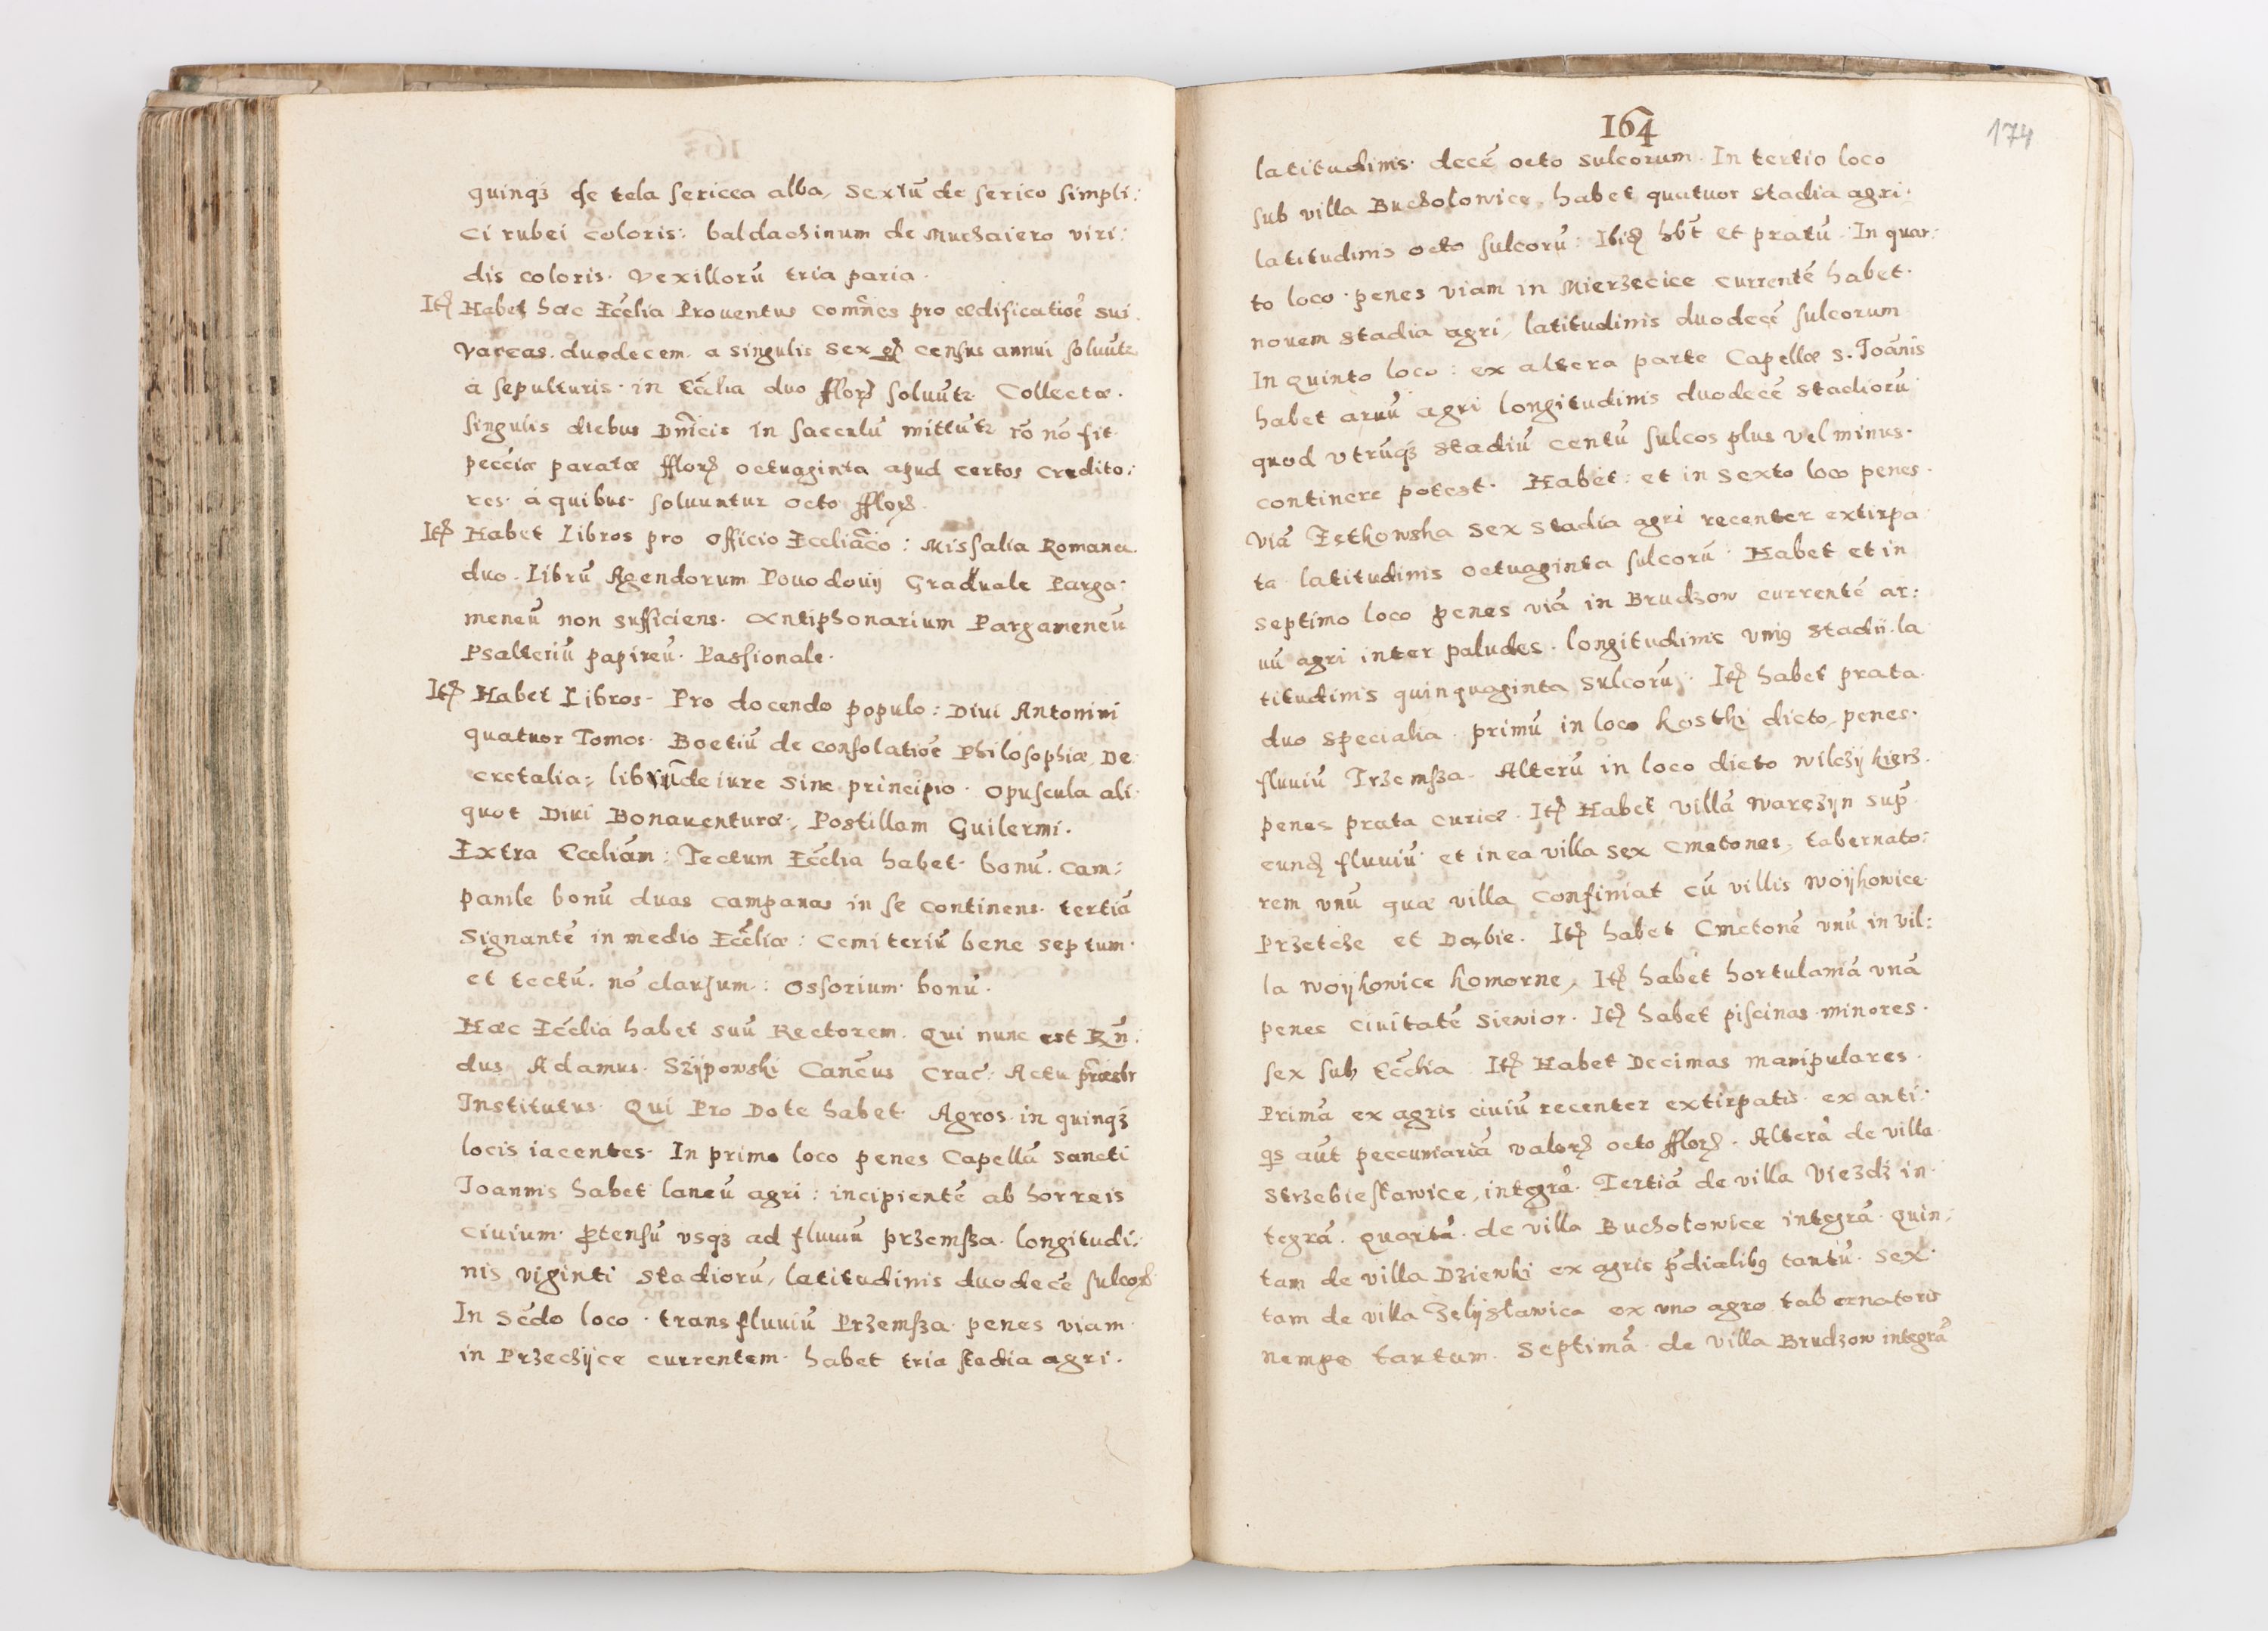 quinqȝ de tela sericea alba, Sextū de serico simpli:
ci rubei coloris: baldachinum de Muchaiero viri:
dis coloris. Vexillorū tria paria.
Itē Habet hæc Ecclīa Prouentus comm̄es pro ædificatioē sui.
Vareas. duodecem. a singulis sex census annui soluūtr
a sepulturis. in Eccl̄ia duo fflor̄ soluūtr Collectæ.
singulis diebus Dnīcis in sacculū mittūtr rō nō fit.
peccīæ paratæ fflor̄ octuaginta apud certos credito:
res. a quibus. soluuntur octo fflor̄.
Itē Habet Libros pro officio Eccliācō: Missalia Romana
duo. Librū Agendorum Pouodouij Graduale Parga:
meneū non sufficiens. Antiphonarium Pargameneū
Psalteriū papireū. Passionale.
Itē Habet Libros. Pro docendo populo: Diui Antonini
quatuor Tomos. Boetiū de consolatioē Philosophiæ, De
cretalia: librū de iure Sine principio. Opuscula ali:
quot Diui Bonauenturæ:, Postillam Guilermi.
Extra Eccliām: Tectum Eccl̄ia habet. bonū. Cam:
panile bonū duas campanas in se continens. tertiā
Signantē in medio Eccl̄iæ: Cemiteriū bene septum.
et tectū. nō clausum: Ossorium. bonū.
Hæc Eccl̄ia habet suū Rectorem. Qui nunc est Rn̄:
dus Adamus. Szijpowski Canc̄us Crac̄: Actu præsbr
Institutus. Qui Pro Dote habet. Agros. in quinqȝ
locis iacentes. In primo loco penes Capellā Sancti
Joannis habet laneū agri: incipientē ab horreis
Ciuium. ꝓtensū vsqȝ ad fluuiū przemsza. longitudi:
nis viginti Stadiorū, latitudinis duodecē sulcor̄
In Sēdo loco. trans fluuiū Przemsza. penes viam.
in Przeczijce currentem. habet tria stadia agri.
164
174
latitudinis. decē octo sulcorum. In tertio loco
sub villa Bucholowice, habet quatuor stadia agri.
latitudinis octo sulcorū: Ibid̄ hbt̄ et pratū. In quar:
to loco. penes viam in Mierzecice currentē habet.
nouem stadia agri, latitudinis duodecē sulcorum
In quinto loco: ex altera parte Capellæ S. Joānis
habet aruū agri longitudinis duodecē stadiorū
quod vtrūqȝ stadiū centū sulcos plus vel minus.
continere potest. Habet: et in Sexto loco penes.
Viā sex stadia agri recenter extirpa
ta latitudinis octuaginta sulcorū. Habet et in
septimo loco penes viā in Brudzow currentē ar:
uū agri inter paludes. longitudinis vniꝰ stadii. la
titudinis quinquaginta sulcorū. Itē habet prata.
duo specialia. primū in loco kosthi dicto, penes.
fluuiū Przemsza. Alterū in loco dicto wilczij kierz.
penes prata curiæ. Itē Habet villā Waręzijn sup̄
eund̄ fluuiū. et in ea villa sex Cmetones, tabernato:
rem vnū quæ villa confiniat cū villis Woijkowice
Przetcze et Dąbie. Itē habet Cmetonē vnū in vil:
la Woijkowice komorne, Itē habet hortulaniā vnā
penes Ciuitatē Siewior. Itē habet piscinas. minores.
sex sub Eccl̄ia. Itē Habet Decimas manipulares.
Primā ex agris ciuiū recenter extirpatis. ex anti:
qs aūt peccuniariā valor̄ octo fflor̄. Alterā de villa
Strzebiesławice, integrā. Tertiā de villa Viezdz in:
tegrā. Quartā. de villa Bucholowice integrā. Quin:
tam de villa Dziewki ex agris p̄dialibꝰ tantū. Sex.
tam de villa Zelijsławice ex vno agro tabernatoris
nempe tantum. Septimā. de villa Brudzow integrā